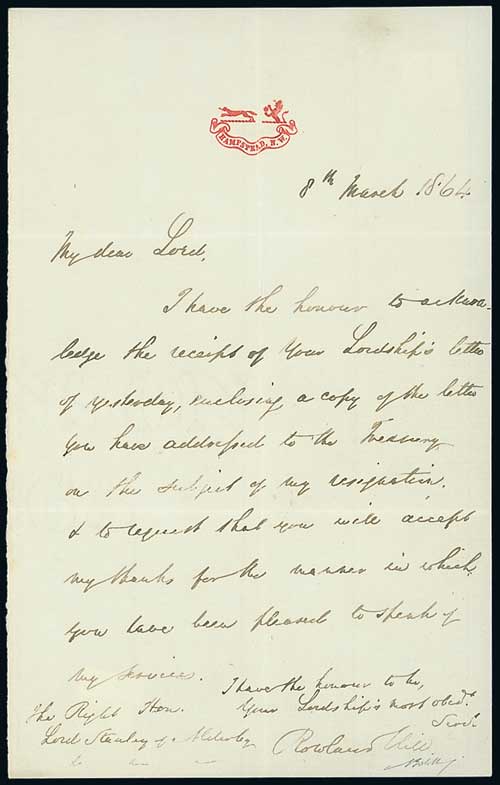 HAMPSTEAD, N.W.
8th March 1864
My dear Lord,
I have the honour to acknow-
ledge the receipt of Your Lordship's letter
of yesterday, enclosing a copy of the letter
you have addressed to the Treasury
on the subject of my resignation,
& to request that you will accept
my thanks for the manner in which
you have been pleased to speak of
my services.
I have the honour to be,
Your Lordship's most obedt.
Servt.
Rowland Hill
The Right Hon.
Lord Stanley of Alderley